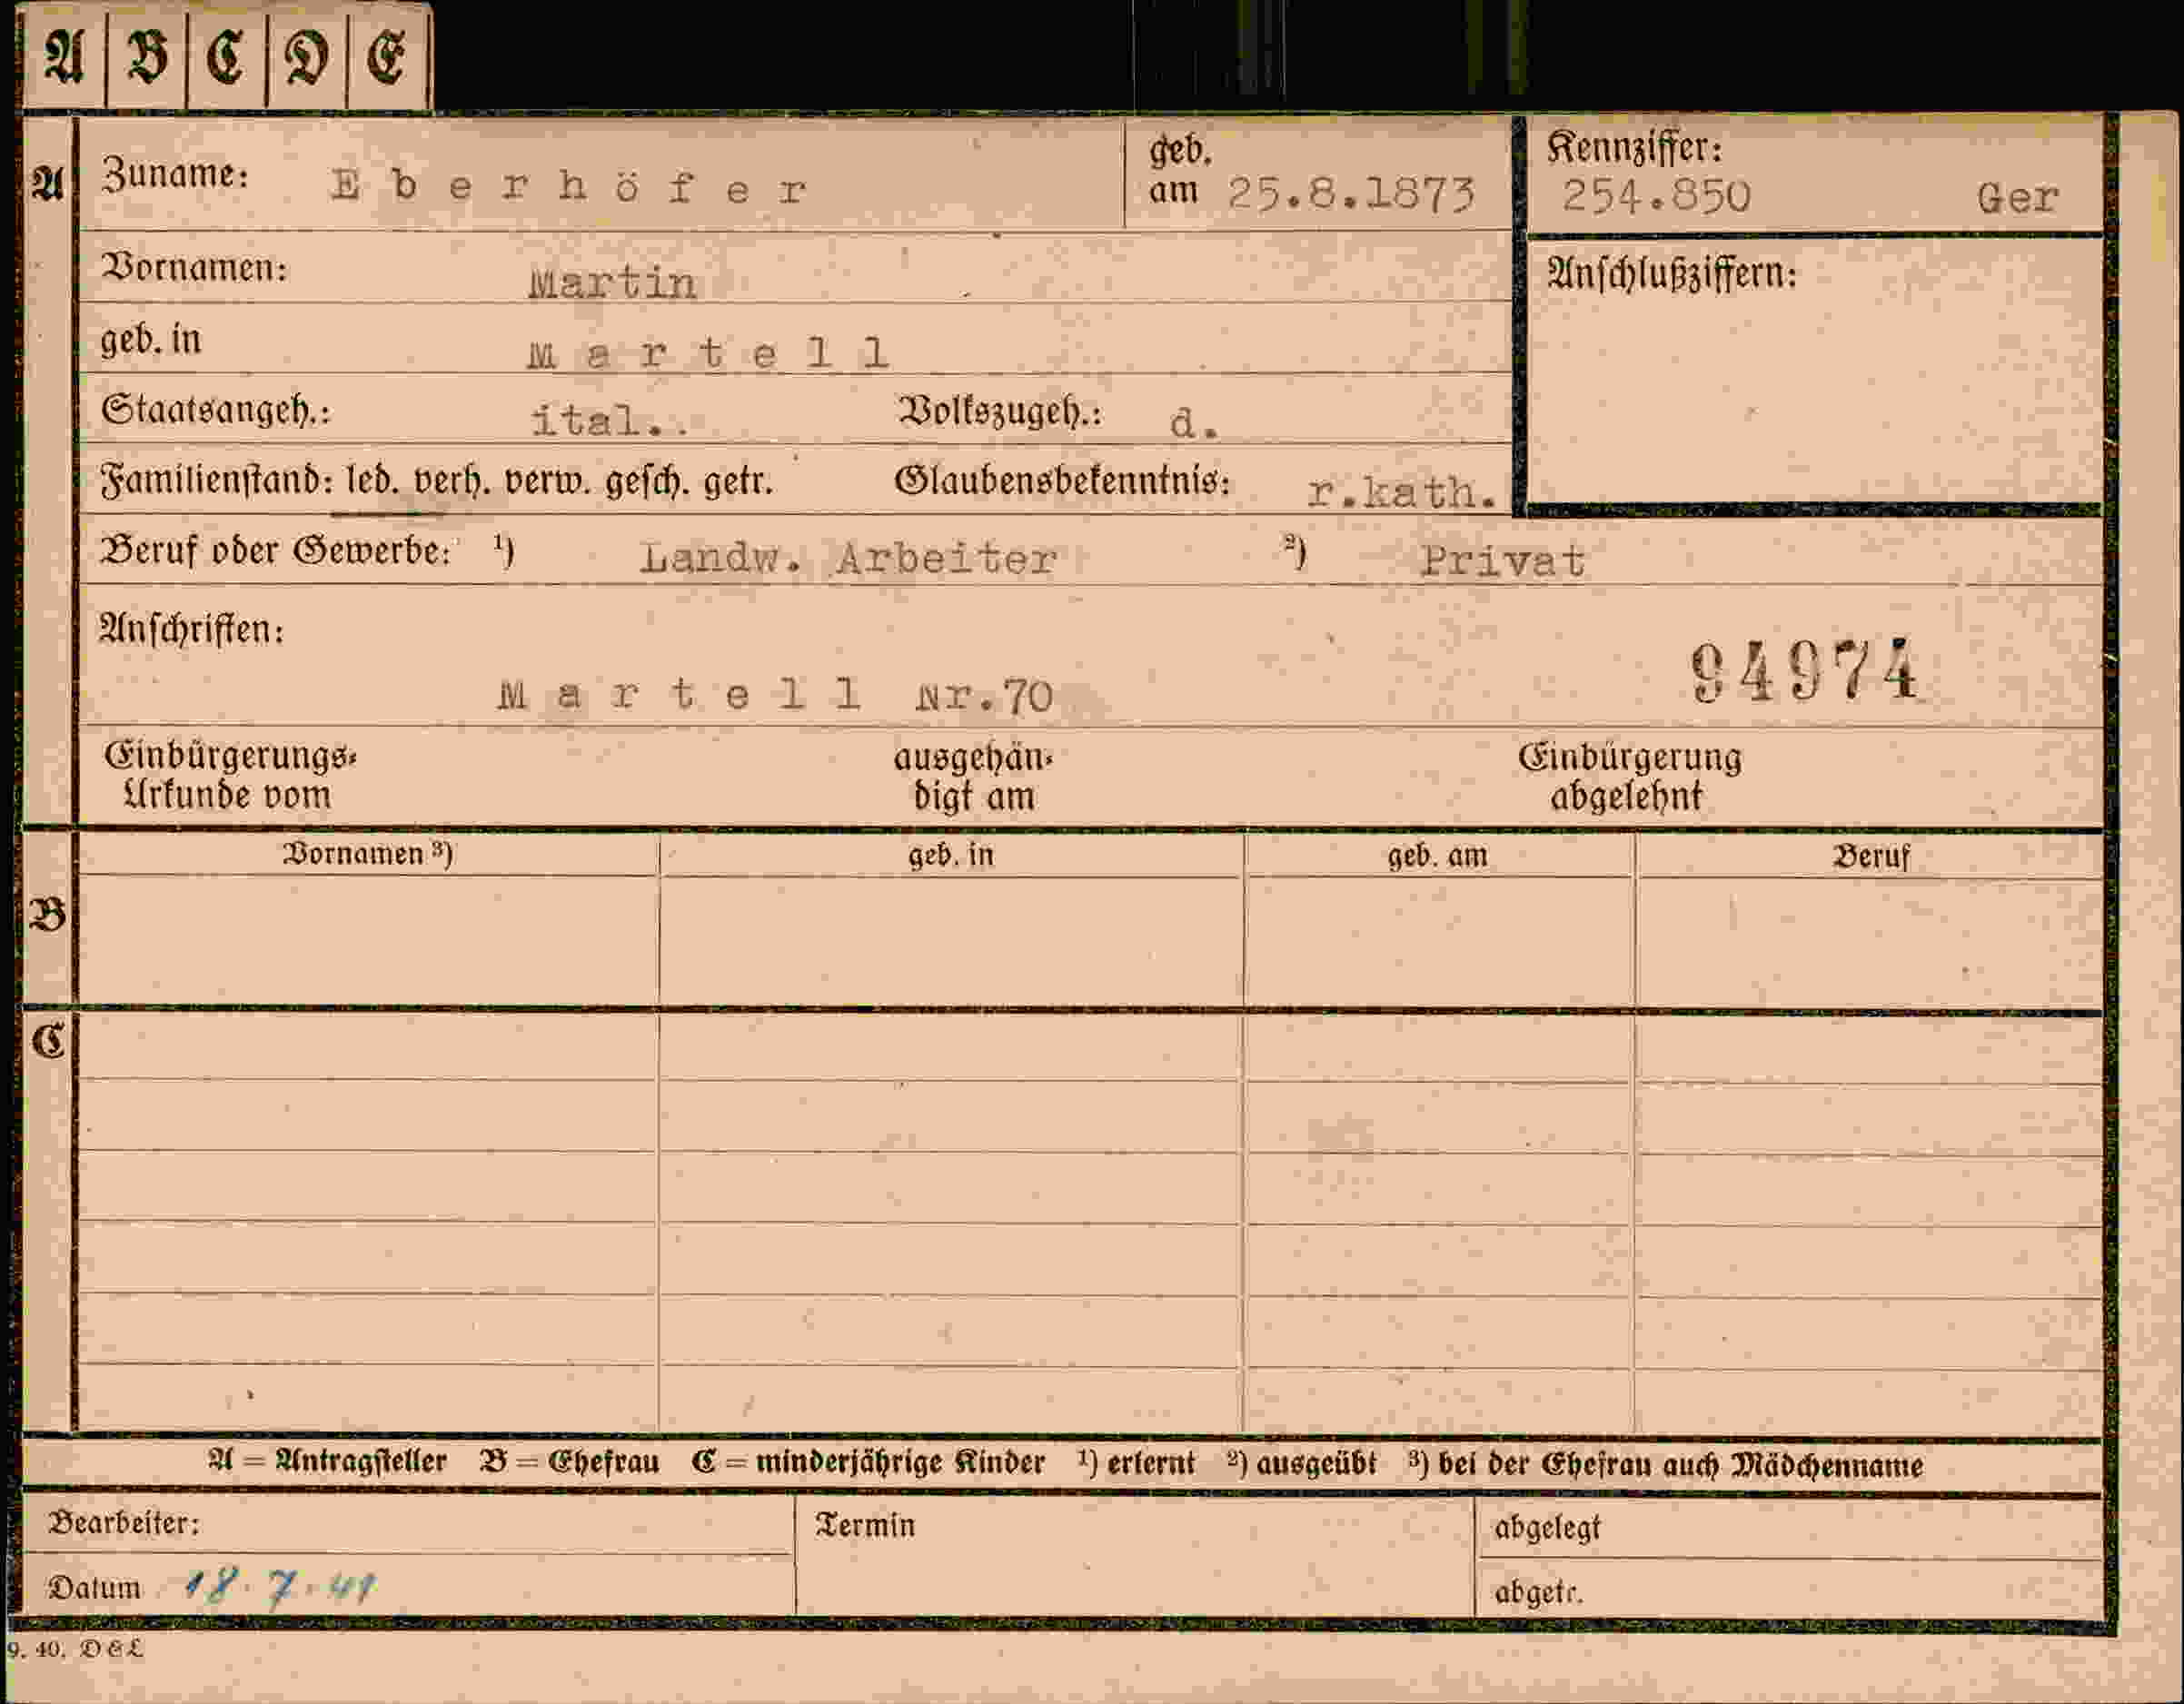 A B C D E
A Zuname: Eberhöfer geb. am 25.8.1873 Kennziffer: 254.850 Ger
Vornamen: Martin Anschlußziffern:
geb. in Martell
Staatsangeh.: ital.. Volkszugeh.: d.
Familienstand: led. verh. verw. gesch. getr. Glaubensbekenntnis: r.kath.
Beruf oder Gewerbe: 1) Landw. Arbeiter 2) Privat
Anschriften:
94974
Martell Nr.70
Einbürgerungs- ausgehän- Einbürgerung
Urkunde vom digt am abgelehnt
Vornamen 3) geb. in geb. am Beruf
B
C
A = Antragsteller B = Ehefrau C = minderjährige Kinder 1) erlernt 2) ausgeübt 3) bei der Ehefrau auch Mädchenname
Bearbeiter: Termin abgelegt
Datum 18.7.41 abgetr.
9. 40. D & L